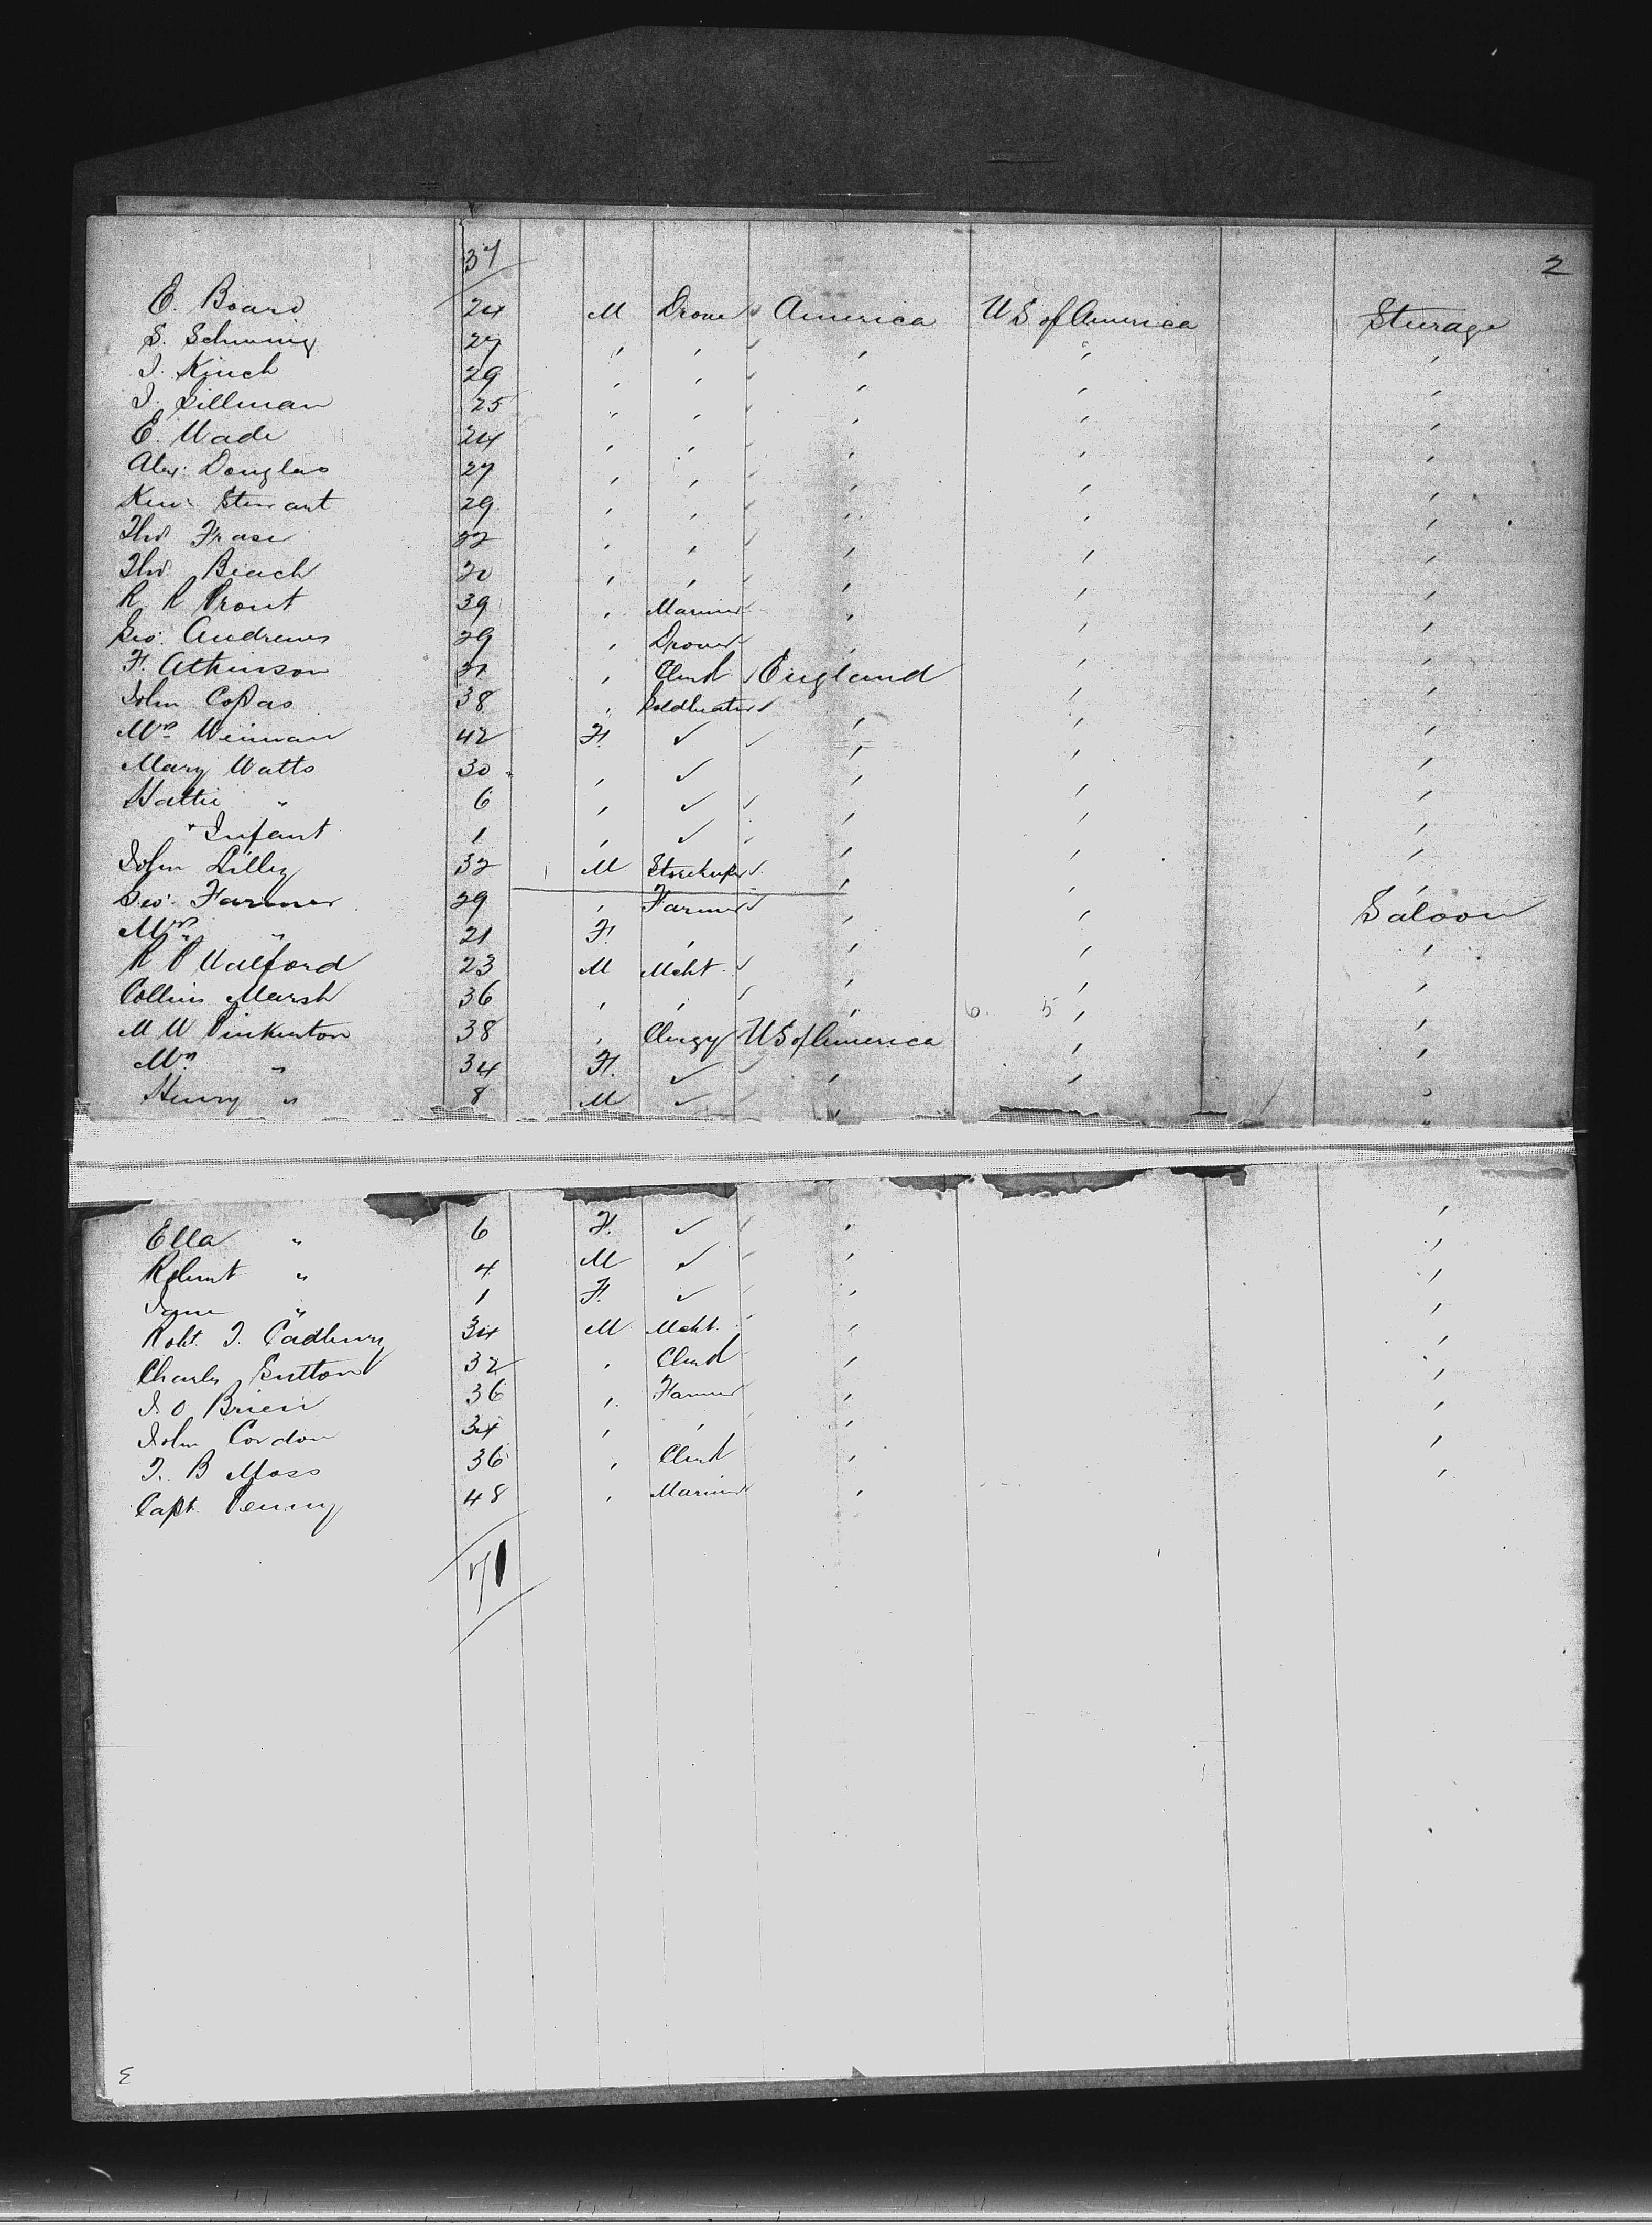 37
2
E. Board 24 M Drover America U S of America Steerage
S. Schuring 27 " " " " "
J. Kinch 29 " " " " "
J. Sillman 25 " " " " "
E. Wade 24 " " " " "
Alex. Douglas 27 " " " " "
Ken. Stewart 29 " " " " "
Thos Fraser 22 " " " " "
Thos. Beach 20 " " " " "
R R Prout 39 " Mariner " " "
Geo. Andrews 29 " Drover " " "
F. Atkinson 21 " Clerk England " "
John Copas 38 " Goldbeater " "
Mrs Weinman 42 F. ✓ " " "
Mary Watts 30 " ✓ " " "
Hattie " 6 " ✓ " " "
" Infant 1 " ✓ " " "
John Lilley 32 M Storekeeper " " "
Geo. Farmer 29 " Farmer " " Saloon
Mrs " 21 F. " " " "
R P Walford 23 M Mcht. " " "
Collins Marsh 36 " " " " "
M W Pinkerton 38 " Clergy U S of America " "
Mrs " 34 F. ✓ " " "
Henry " 8 M ✓ " "
Ella " 6 F. ✓ " "
Robert " 4 M ✓ " "
Jane " 1 F. ✓ " "
Robt. J. Cadbury 34 M Mcht. " "
Charles Sutton 32 " Clerk " "
J. O Brien 36 " Farmer " "
John Cordon 34 " " " "
T. B Moss 36 " Clerk " "
Capt. Penny 48 " Mariner " "
71